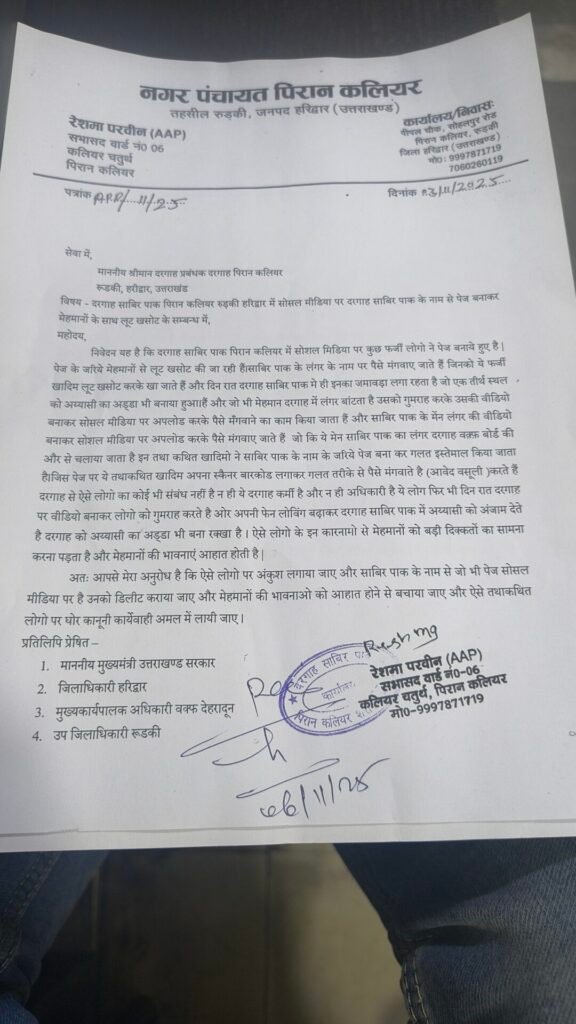 नगर पंचायत पिरान कलियर
तहसील रुड़की, जनपद हरिद्वार (उत्तराखण्ड)
रेशमा परवीन (AAP)
सभासद वार्ड नं0 06
कलियर चतुर्थ
पिरान कलियर
कार्यालय/निवासः
पीपल चौक, सोहलपुर रोड
पिरान कलियर, रूड़की
जिला हरिद्वार (उत्तराखण्ड)
मो0: 9997871719
7060260119
पत्रांक /11/25
दिनांक 03/11/2025
सेवा में,
माननीय श्रीमान दरगाह प्रबंधक दरगाह पिरान कलियर
रूडकी, हरीद्वार, उत्तराखंड
विषय - दरगाह साबिर पाक पिरान कलियर रुड़की हरिद्वार में सोसल मीडिया पर दरगाह साबिर पाक के नाम से पेज बनाकर
मेहमानों के साथ लूट खसोट के सम्बन्ध में,
महोदय,
निवेदन यह है कि दरगाह साबिर पाक पिरान कलियर में सोशल मिडिया पर कुछ फर्जी लोगो ने पेज बनाये हुए है|
पेज के जरिये मेहमानों से लूट खसोट की जा रही हैं।साबिर पाक के लंगर के नाम पर पैसे मंगवाए जाते हैं जिनको ये फर्जी
खादिम लूट खसोट करके खा जाते हैं और दिन रात दरगाह साबिर पाक मे ही इनका जमावड़ा लगा रहता है जो एक तीर्थ स्थल
को अय्यासी का अड्डा भी बनाया हुआ।हैं और जो भी मेहमान दरगाह में लंगर बांटता है उसको गुमराह करके उसकी वीडियो
बनाकर सोसल मीडिया पर अपलोड करके पैसे मँगवाने का काम किया जाता हैं और साबिर पाक के मेंन लंगर की वीडियो
बनाकर सोशल मीडिया पर अपलोड करके पैसे मंगवाए जाते हैं जो कि ये मेन साबिर पाक का लंगर दरगाह वक़्फ़ बोर्ड की
और से चलाया जाता है इन तथा कथित खादिमो ने साबिर पाक के नाम के जरिये पेज बना कर गलत इस्तेमाल किया जाता
है।जिस पेज पर ये तथाकथित खादिम अपना स्कैनर बारकोड लगाकर गलत तरीके से पैसे मंगवाते है (आवेद वसूली )करते हैं
दरगाह से ऐसे लोगों का कोई भी संबंध नहीं है न ही ये दरगाह कर्मी है और न ही अधिकारी है ये लोग फिर भी दिन रात दरगाह
पर वीडियो बनाकर लोगो को गुमराह करते है ओर अपनी फेन लोविंग बढ़ाकर दरगाह साबिर पाक में अय्यासी को अंजाम देते
है दरगाह को अय्यासी का अड्डा भी बना रक्खा है । ऐसे लोगो के इन कारनामो से मेहमानों को बड़ी दिक्कतों का सामना
करना पड़ता है और मेहमानों की भावनाएं आहात होती है|
अतः आपसे मेरा अनुरोध है कि ऐसे लोगों पर अंकुश लगाया जाए और साबिर पाक के नाम से जो भी पेज सोसल
मीडिया पर है उनको डिलीट कराया जाए और मेहमानों की भावनाओ को आहात होने से बचाया जाए और ऐसे तथाकथित
लोगो पर घोर कानूनी कार्येवाही अमल में लायी जाए।
प्रतिलिपि प्रेषित –
1. माननीय मुख्यमंत्री उत्तराखण्ड सरकार
2. जिलाधिकारी हरिद्वार
3. मुख्यकार्यपालक अधिकारी वक्फ देहरादून
4. उप जिलाधिकारी रूडकी
Reshma
रेशमा परवीन (AAP)
सभासद वार्ड नं0-06
कलियर चतुर्थ, पिरान कलियर
मो0-9997871719
दरगाह साबिर
कार्यालय
पिरान कलियर
06/11/25